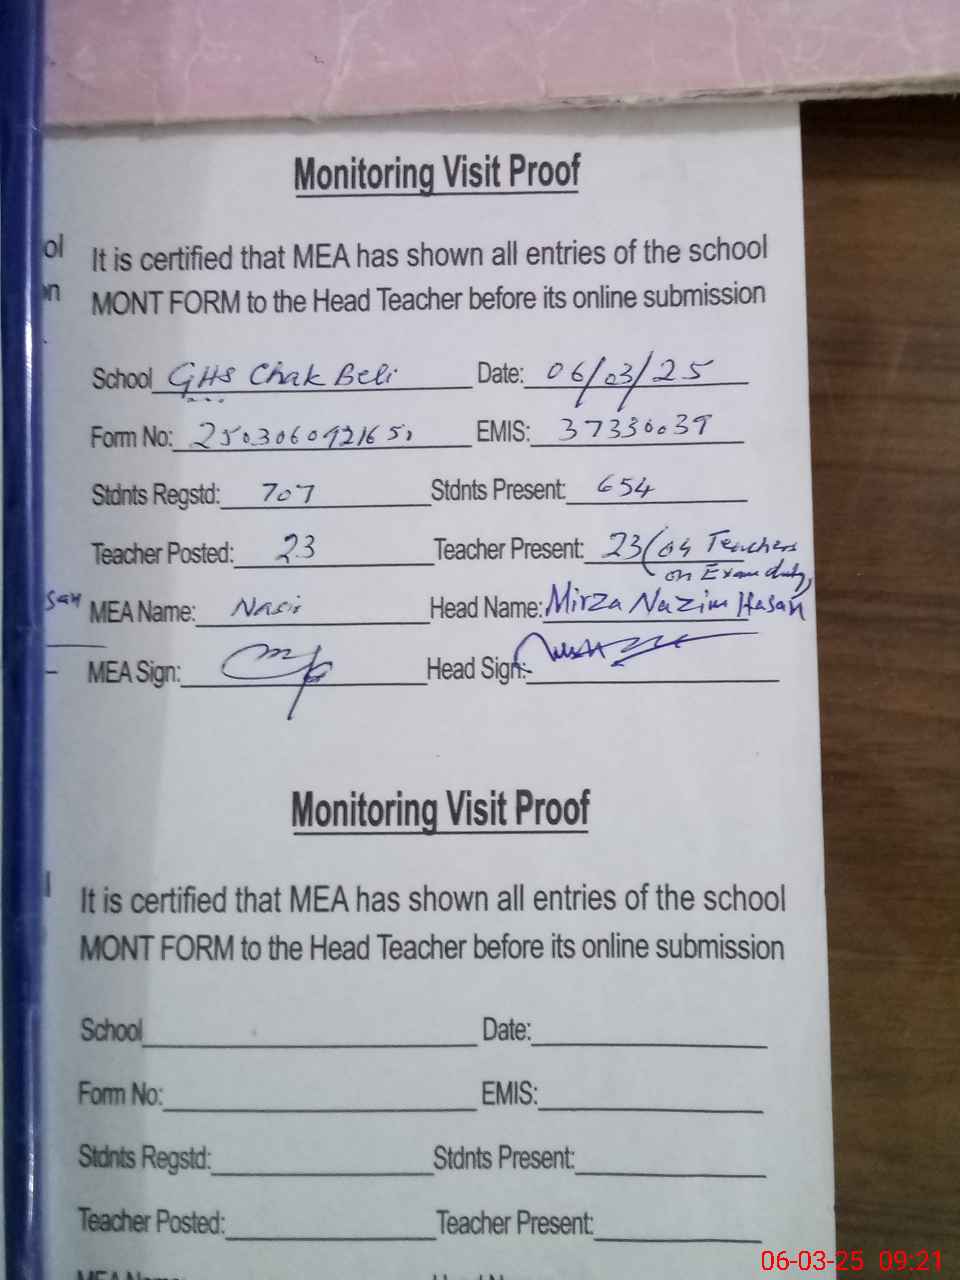 Monitoring Visit Proof
ol
It is certified that MEA has shown all entries of the school
on
MONT FORM to the Head Teacher before its online submission
School GHS Chak Beli Date: 06/03/25
Form No: EMIS: 37330039
Stdnts Regstd: 707 Stdnts Present: 654
Teacher Posted: 23 Teacher Present: 23 (04 Teachers
on Exam duty)
san
MEA Name: Nasir Head Name: Mirza Nazim Hasan
MEA Sign: Head Sign:-
Monitoring Visit Proof
It is certified that MEA has shown all entries of the school
MONT FORM to the Head Teacher before its online submission
School Date:
Form No: EMIS:
Stdnts Regstd: Stdnts Present:
Teacher Posted: Teacher Present:
06-03-25 09:21